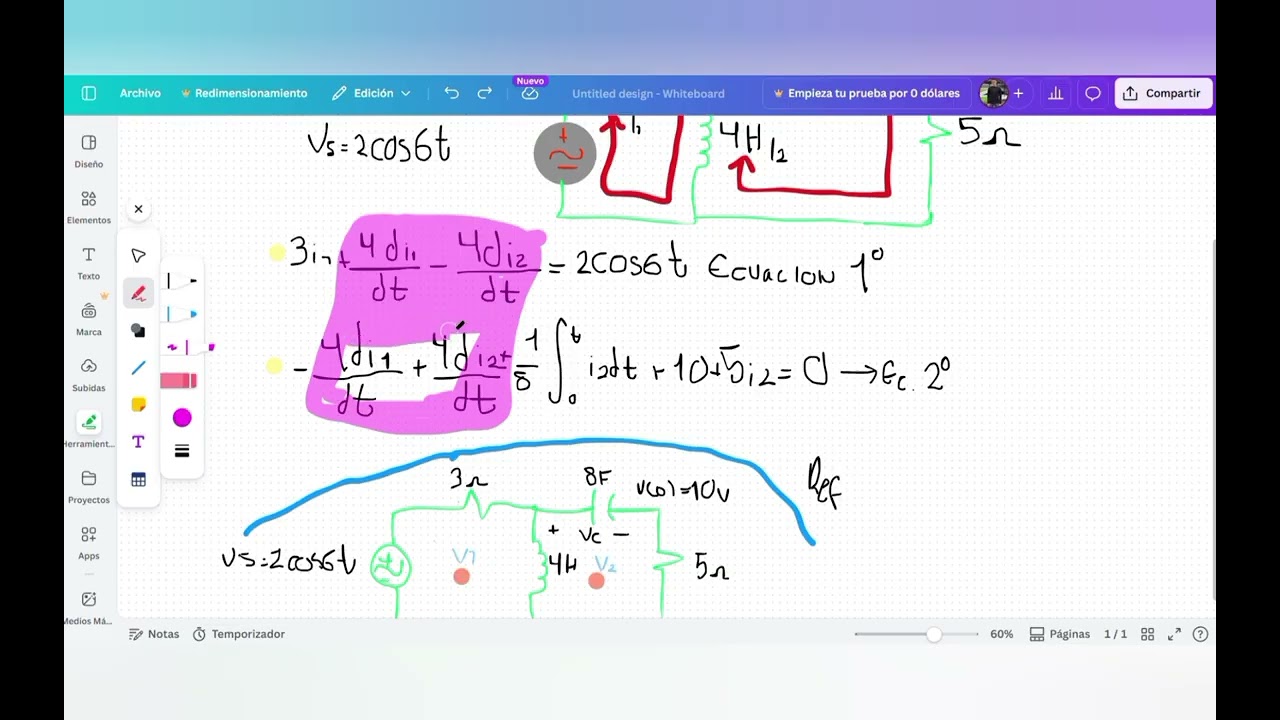 Nuevo
Archivo
Redimensionamiento
Edición
Untitled design - Whiteboard
Empieza tu prueba por 0 dólares
+
Compartir
Diseño
Elementos
Texto
Marca
Subidas
Herramient...
Proyectos
Apps
Medios Má...
Vs=2cos6t
4H
I2
5Ω
3i1+ 4di1/dt - 4di2/dt = 2cos6t Ecuacion 1º
- 4di1/dt + 4di2/dt + 1/8 ∫₀ᵗ i2dt + 10+5i2=0 → Ec. 2º
Ref
3Ω
8F
v(o)=10v
+ Vc -
Vs=2cos6t
V1
4H
V2
5Ω
Notas
Temporizador
60%
Páginas
1/1